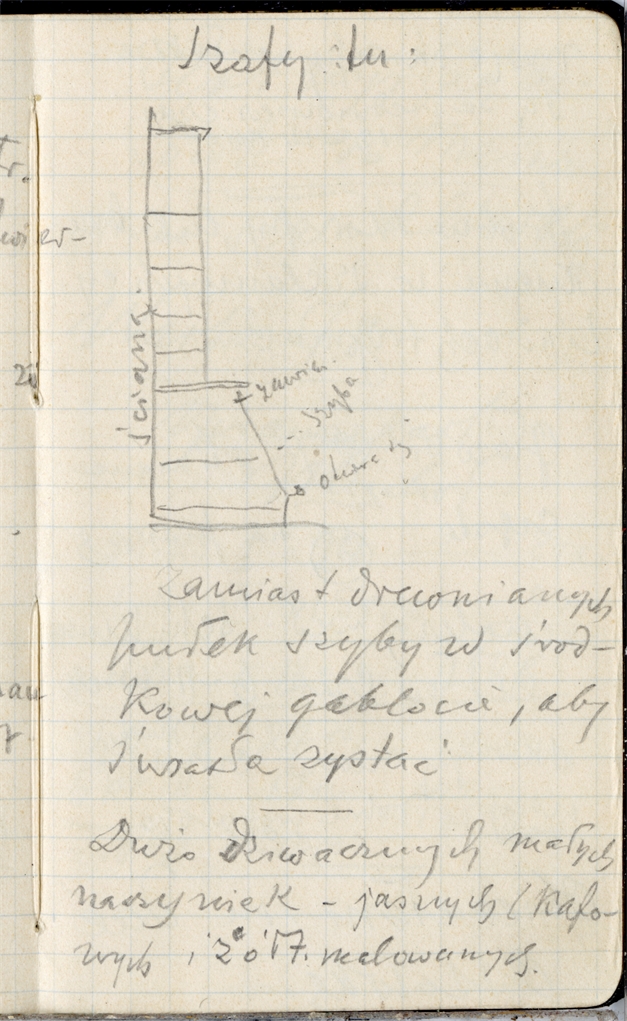 Szafy tu:
ściana.
zawias.
szyba
otwiera się
Zamiast drewnianych
pułek szyby w środ-
kowej gablocie, aby
światła zyskać
Dużo dziwacznych małych
naczyniek - jasnych (kafo-
wych i żółt. malowanych.